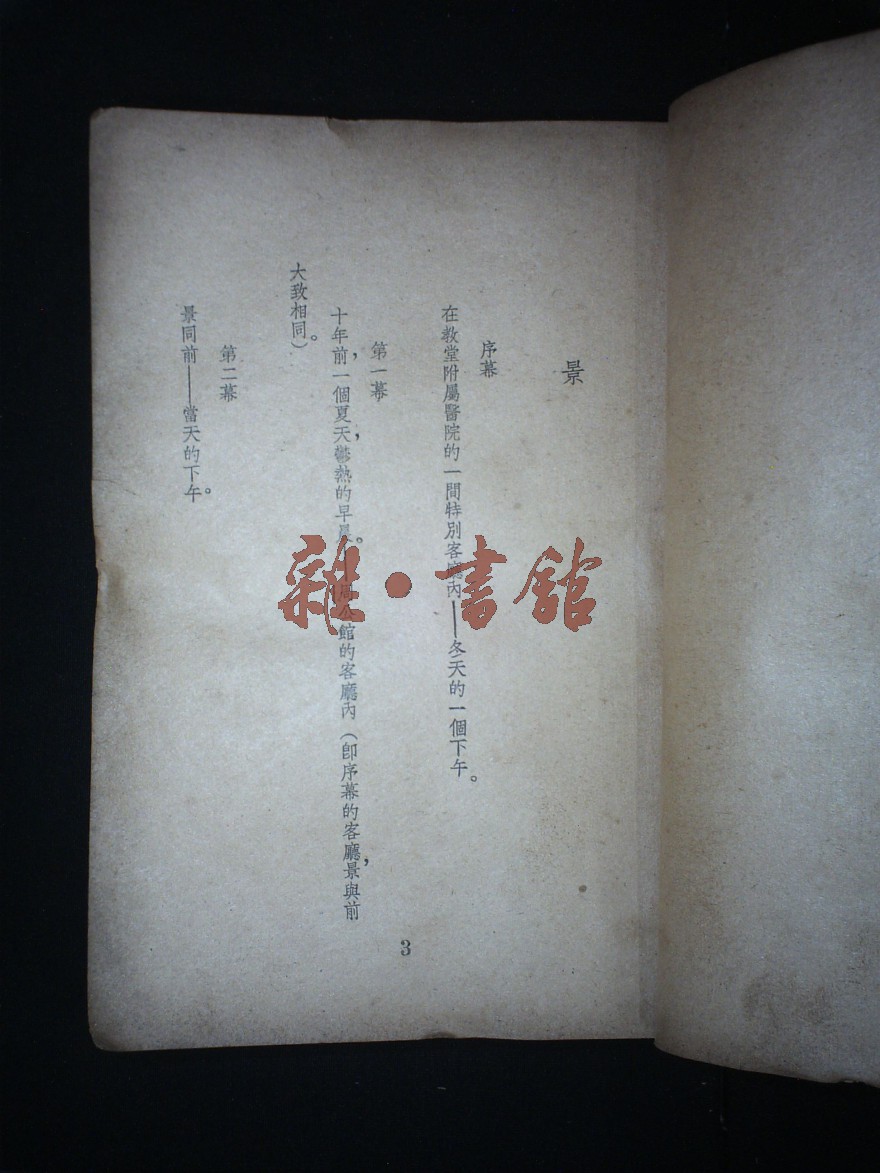 景
序幕
在教堂附屬醫院的一間特別客廳內——冬天的一個下午。
第一幕
十年前,一個夏天,鬱熱的早晨。——周公館的客廳內(卽序幕的客廳,景與前
大致相同。)
第二幕
景同前——當天的下午。
3
雜·書館